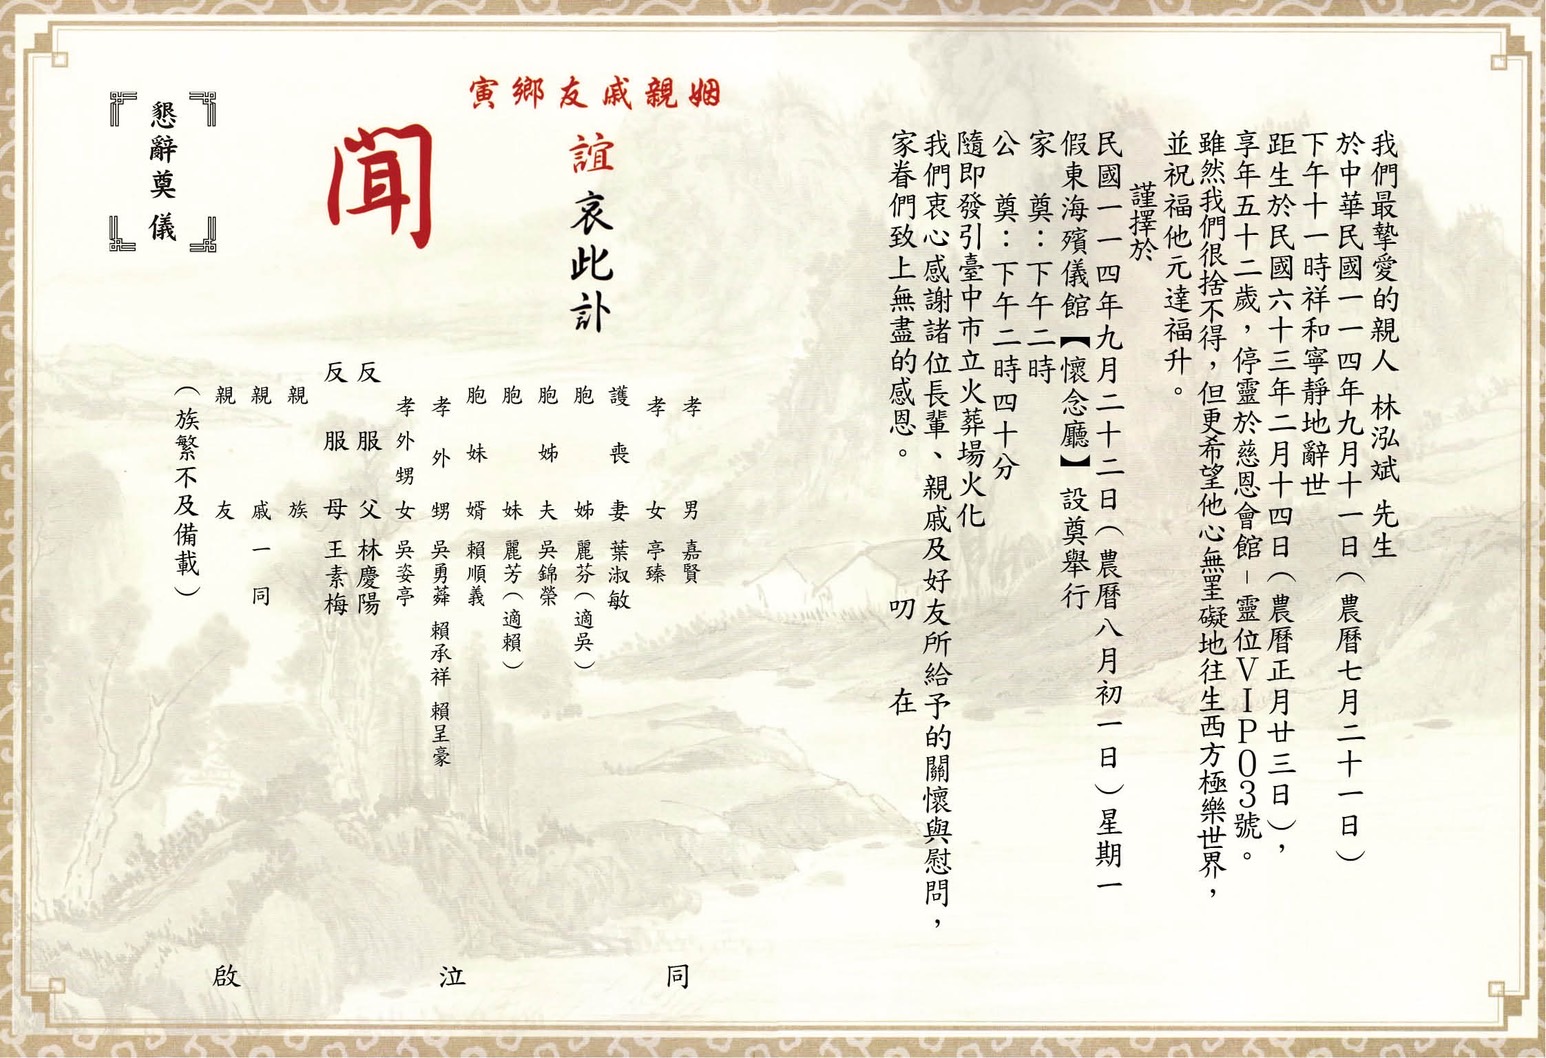 我們最摯愛的親人 林泓斌 先生
於中華民國一一四年九月十一日（農曆七月二十一日）
下午十一時祥和寧靜地辭世
距生於民國六十三年二月十四日（農曆正月廿三日），
享年五十二歲，停靈於慈恩會館－靈位VIP03號。
雖然我們很捨不得，但更希望他心無罣礙地往生西方極樂世界，
並祝福他元達福升。
謹擇於
民國一一四年九月二十二日（農曆八月初一日）星期一
假東海殯儀館【懷念廳】設奠舉行
家　奠：下午二時
公　奠：下午二時四十分
隨即發引臺中市立火葬場火化
我們衷心感謝諸位長輩、親戚及好友所給予的關懷與慰問，
家眷們致上無盡的感恩。　叨　在
寅鄉友戚親姻
誼哀此訃
聞
懇辭奠儀
孝男 嘉賢
孝女 亭臻
護喪妻 葉淑敏
胞姊 麗芬（適吳）
胞姊夫 吳錦榮
胞妹 麗芳（適賴）
胞妹婿 賴順義
孝外甥 吳勇蕣 賴承祥 賴呈豪
孝外甥女 吳姿亭
反服父 林慶陽
反服母 王素梅
親族
親戚一同
親友
（族繁不及備載）
同 泣 啟